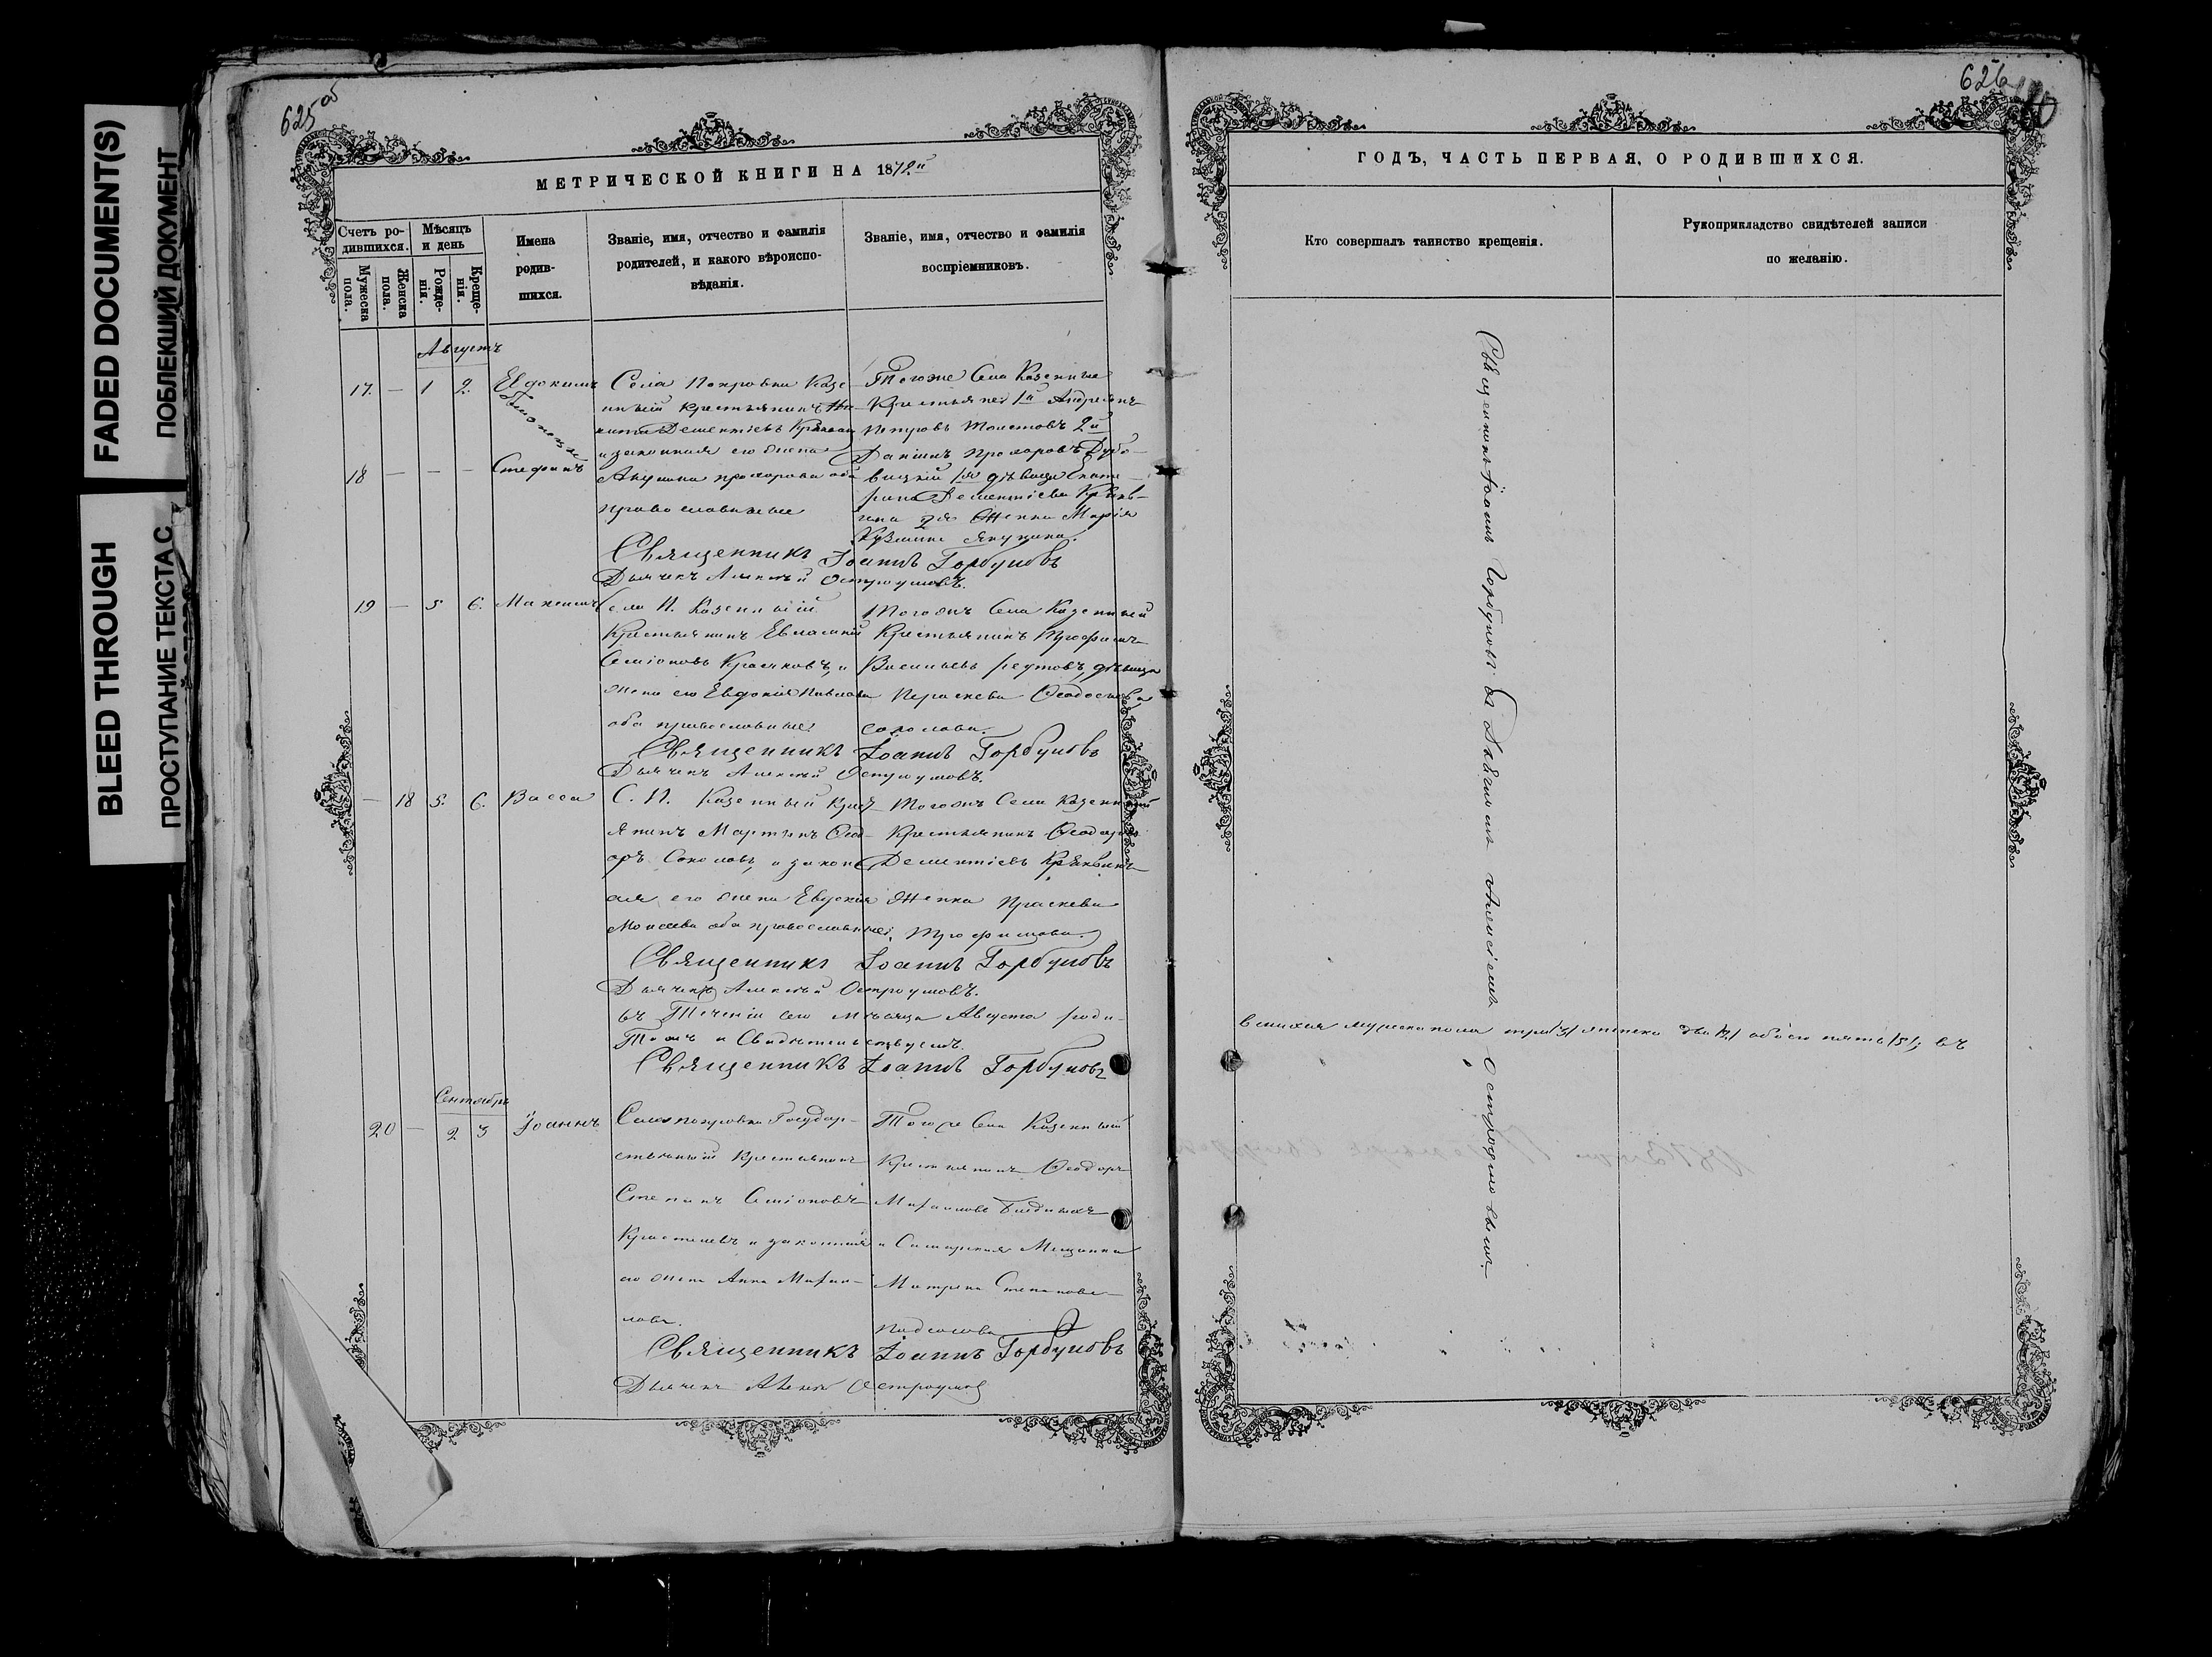 FADED DOCUMENT(S)
ПОБЛЕКШИЙ ДОКУМЕНТ
BLEED THROUGH
ПРОСТУПАНИЕ ТЕКСТА С
625 об
МЕТРИЧЕСКОЙ КНИГИ НА 1872й
Счетъ ро-
дившихся.
Мужеска пола.
Женска пола.
Мѣсяцъ
и день
Рожде-
нія.
Креще-
нія.
Имена
родив-
шихся.
Званіе, имя, отчество и фамилія
родителей, и какого вѣроиспо-
вѣданія.
Званіе, имя, отчество и фамилія
воспріемниковъ.
Августъ
17. — 1 2. Евдокимъ
близнецы
18 — — — Стефанъ
Села Покровки Казе-
нный крестьянинъ
Дементіевъ
и законная его жена
Акулина прохорова оба
православные
Тогоже Села Казенные
Крестьяне 1й Андреянъ
Петровъ Толстовъ 2й
Даніилъ Прохоровъ Дубо-
вицкій 1я дѣвица Екате-
рина Дементіева
2я Женка Марія
Кузмина
Священникъ Іоаннъ Горбуновъ
Дьячекъ Алексѣй Остроумовъ.
19 — 5 6. Максимъ
Села П. Казенный
Крестьянинъ Евлампій
Семіоновъ Красиковъ, и
жена его Евдокія Павлова
оба православные
Тогожъ Села Казенный
Крестьянинъ Трофимъ
Васильевъ Реутовъ, дѣвица
Параскева Феодосіева
соколова.
Священникъ Іоаннъ Горбуновъ
Дьячекъ Алексѣй Остроумовъ.
— 18 5. 6. Васса
С. П. Казенный Крест-
янинъ Мартинъ Феод-
оръ Соколовъ, и закон
ая его жена Евдокія
Моисеева оба православные.
Тогожъ Села Казенный
Крестьянинъ Феодоръ
Дементіевъ
Женка Праскева
Трофимова
Священникъ Іоаннъ Горбуновъ
Дьячекъ Алексѣй Остроумовъ.
въ Теченіи сего мѣсяца Августа роди-
Томъ и Свидѣтельствуемъ.
Священникъ Іоаннъ Горбуновъ
Сентябрь
20 — 2 3 Іоаннъ
Села покровки Государ-
ственный Крестьянинъ
Степанъ Семіоновъ
и законная
его жена Анна Михаи-
лова.
Тогоже Села Казенный
Крестьянинъ Феодоръ
Михаиловъ
и Самарская Мещанка
Матрена Степанова
Священникъ Іоаннъ Горбуновъ
Дьячекъ Алексѣй Остроумовъ
626
ГОДЪ, ЧАСТЬ ПЕРВАЯ, О РОДИВШИХСЯ.
Кто совершалъ таинство крещенія.
Рукоприкладство свидѣтелей записи
по желанію.
Священникъ Іоаннъ Горбуновъ съ Дьячкомъ Алексѣемъ Остроумовымъ.
вшихся мужеска пола три /3/ женска два /2/ обоего пять /5/, въ